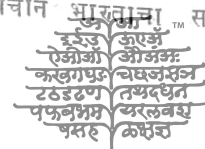 चीन भारताचा स
अ आ ™
इईउ ऊएऍ
ऐओऑ औअंअः
कखगघङ चछजझञ
टठडढण तथदधन
पफबभम यरलवश
षसह ळक्षज्ञ